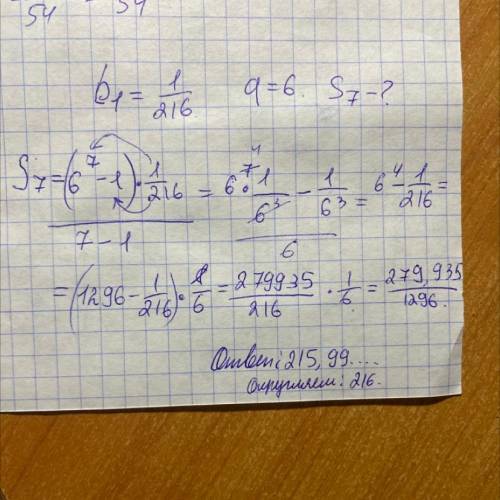 54 54
b₁ = 1/216 q = 6. S₇ - ?
S₇ = (6⁷ - 1) · 1/216 / 7 - 1 = 6⁷ · 1/6³ - 1/6³ / 6 = 6⁴ - 1/216 =
= (1296 - 1/216) · 1/6 = 279935/216 · 1/6 = 279,935/1296.
Ответ: 215,99....
Округляем: 216.